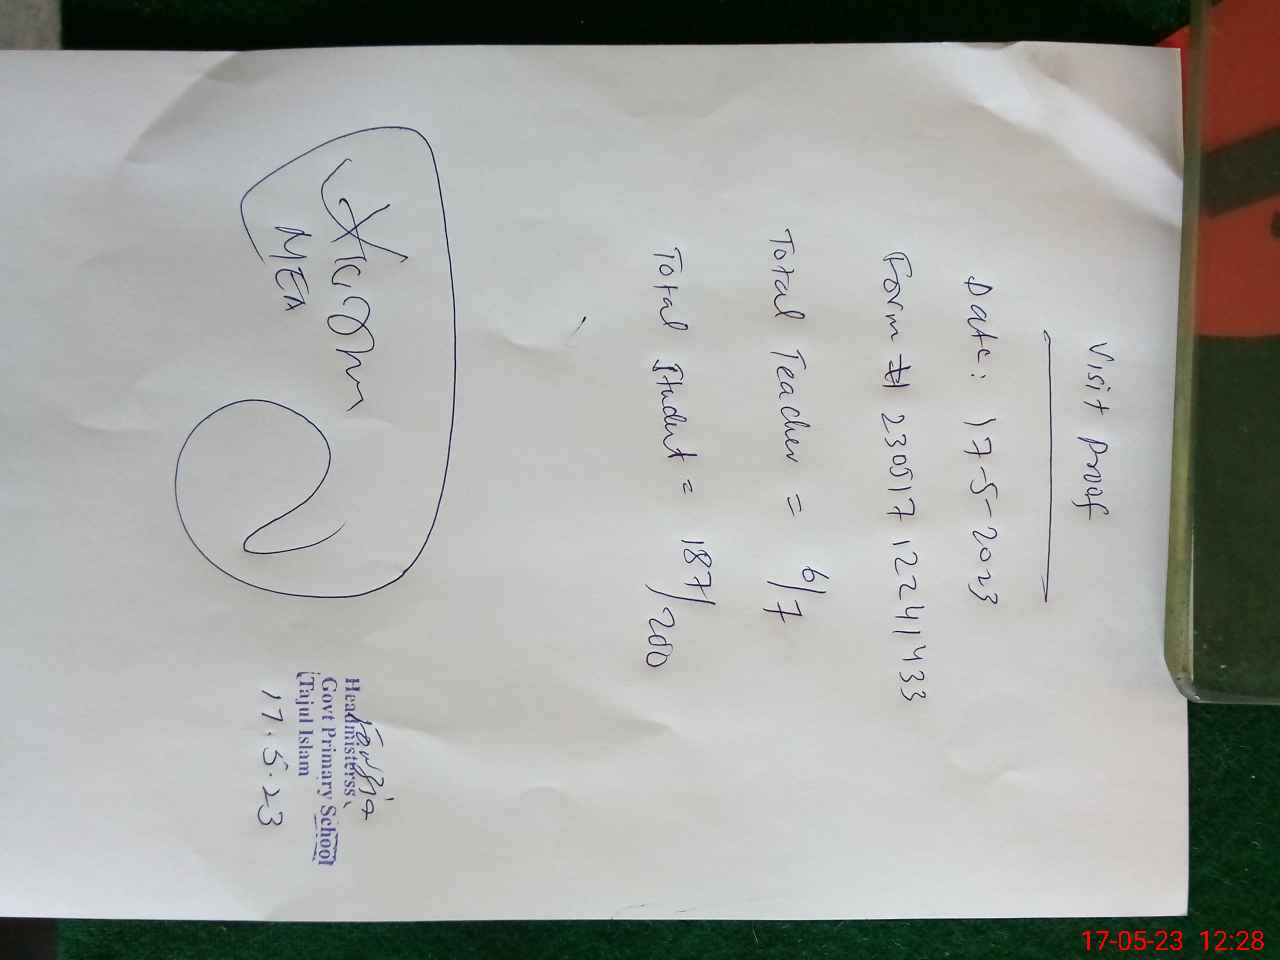 Visit Proof
Date: 17-5-2023
Form # 230517 12241433
Total Teacher = 6/7
Total Student = 187/200
MEA
Headmisterss
Govt Primary School
(Tajul Islam
17.5.23
17-05-23 12:28